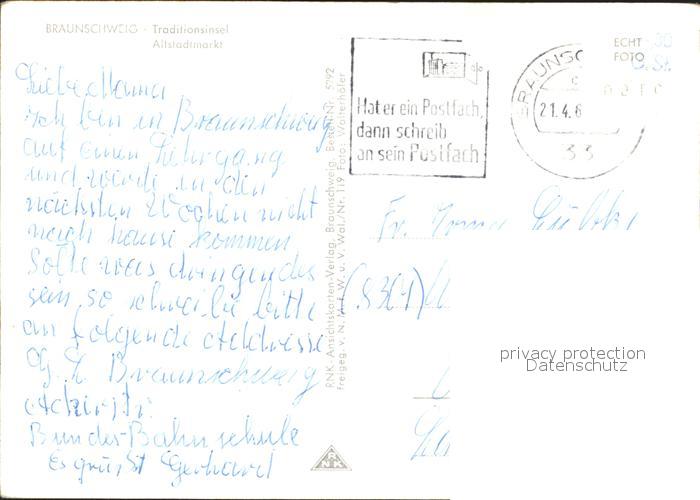 BRAUNSCHWEIG - Traditionsinsel
Altstadtmarkt
Liebe Mama
ich bin in Braunschweig
auf einen Lehrgang
und werde in den
nächsten Wochen nicht
nach hause kommen
Solte was dringendes
sein, so schreibe bitte
an folgende Addresse
Braunschweig
Bundes-Bahnschule
Es grüßt Gerhard
RNK - Ansichtskarten-Verlag, Braunschweig, Bestell-Nr. 5292
Freigeg. v. N. M. f. W. u. V. Wal./Nr. 119 Foto: Walterhöfer
RNK
Hat er ein Postfach,
dann schreib
an sein Postfach
BRAUNSC
21.4.6
33
ECHT
FOTO
Fr.
privacy protection
Datenschutz